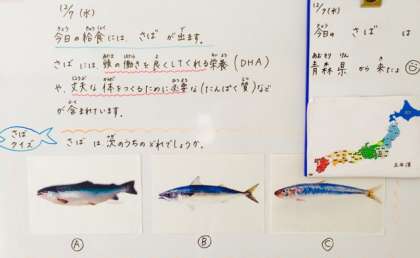 12/7(水)
今日の給食には、さばが出ます。
さばには、頭の働きを良くしてくれる栄養(DHA)
や、丈夫な体をつくるために必要な(たんぱく質)など
が含まれています。
さば
クイズ
さばは次のうちのどれでしょうか。
Ⓐ
Ⓑ
Ⓒ
12/7(水)
今日のさばは
青森県から来たよ
北海道